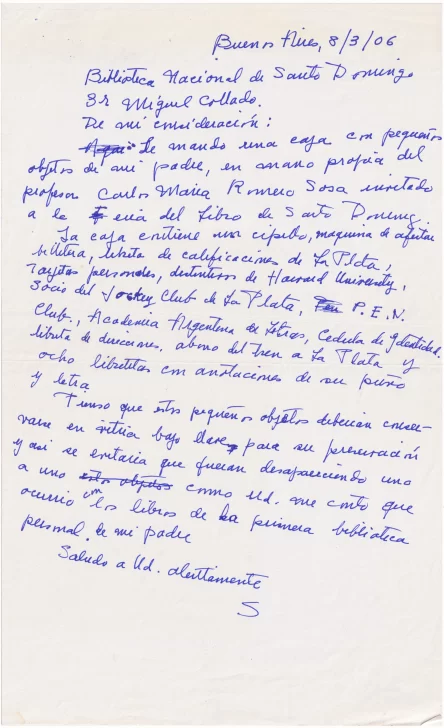 Buenos Aires, 8/3/06
Biblioteca Nacional de Santo Domingo
Sr Miguel Collado.
De mi consideración:
Aqui le mando una caja con pequeños
objetos de mi padre, en mano propia del
profesor Carlos Maria Romero Sosa invitado
a la Feria del Libro de Santo Domingo.
La caja contiene un cepillo, maquina de afeitar
libreta de calificaciones de La Plata,
Tarjetas personales, distintivos de Harvard University,
Socio del Jockey Club de La Plata, P.E.N.
Club, Academia Argentina de Letras, Cedula de Identidad,
libreta de direcciones, abono del tren a La Plata y
ocho libretitas con anotaciones de su puño
y letra
Pienso que estos pequeños objetos deberian conser-
varse en vitrina bajo llave, para su preservación
y asi se evitaria que fueran desapareciendo uno
a uno estos objetos como Ud. me conto que
ocurrio con los libros de la primera biblioteca
personal de mi padre
Saludo a Ud. atentamente
S